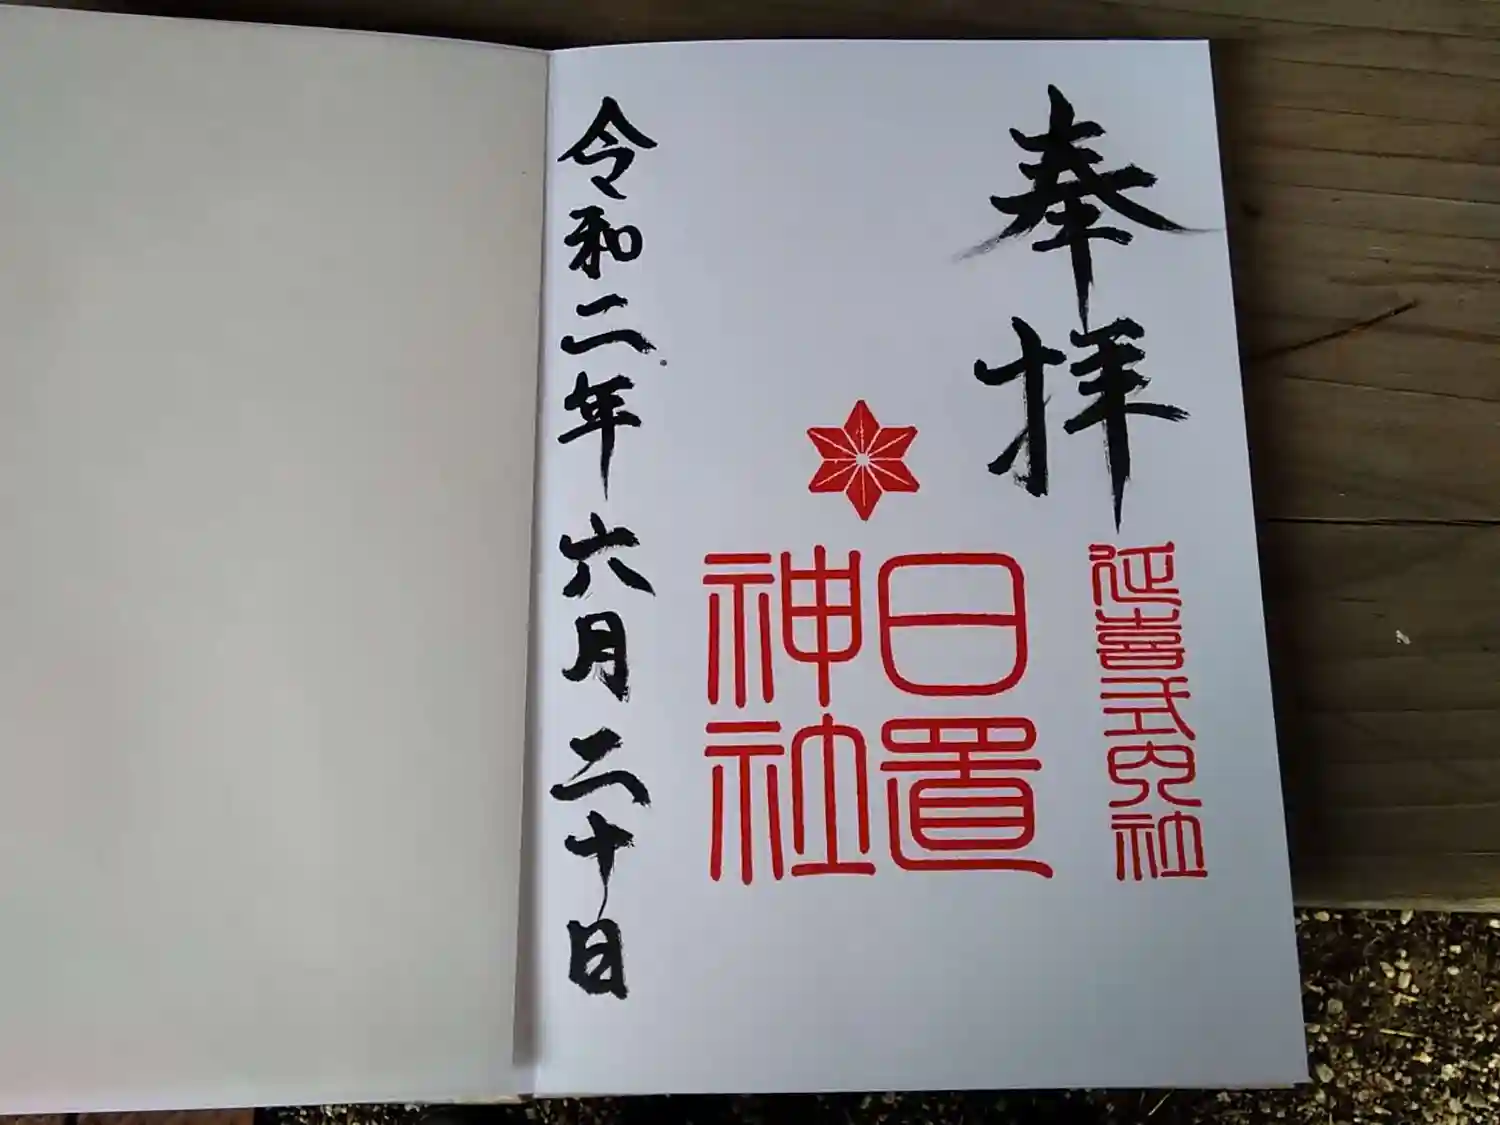 奉拝
延喜式内社
日置
神社
令和二年六月二十日